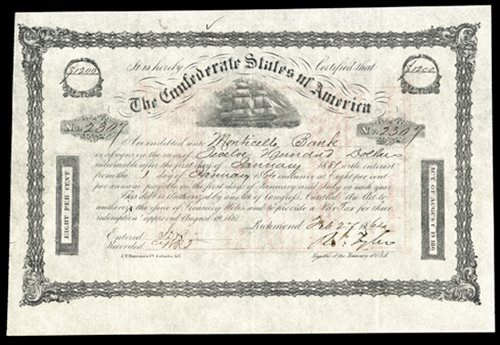 $1200
It is hereby Certified that
$1200
The Confederate States of America
No. 2307
No. 2307
Are indebted unto Monticello Bank
or assigns in the sum of Twelve Hundred Dollars
redeemable after the first day of January 1881 with interest
from the 1 day of January 1864 inclusive at Eight per cent
per annum payable on the first day of January and July in each year
This debt is authorized by an Act of Congress Entitled An Act to
authorize the Issue of Treasury Notes and to provide a War Tax for their
redemption approved August 19, 1861
EIGHT PER CENT
ACT OF AUGUST 19 1861
Richmond Feb 27 1864
Entered
Recorded
Ro. Tyler
Register of the Treasury C.S.